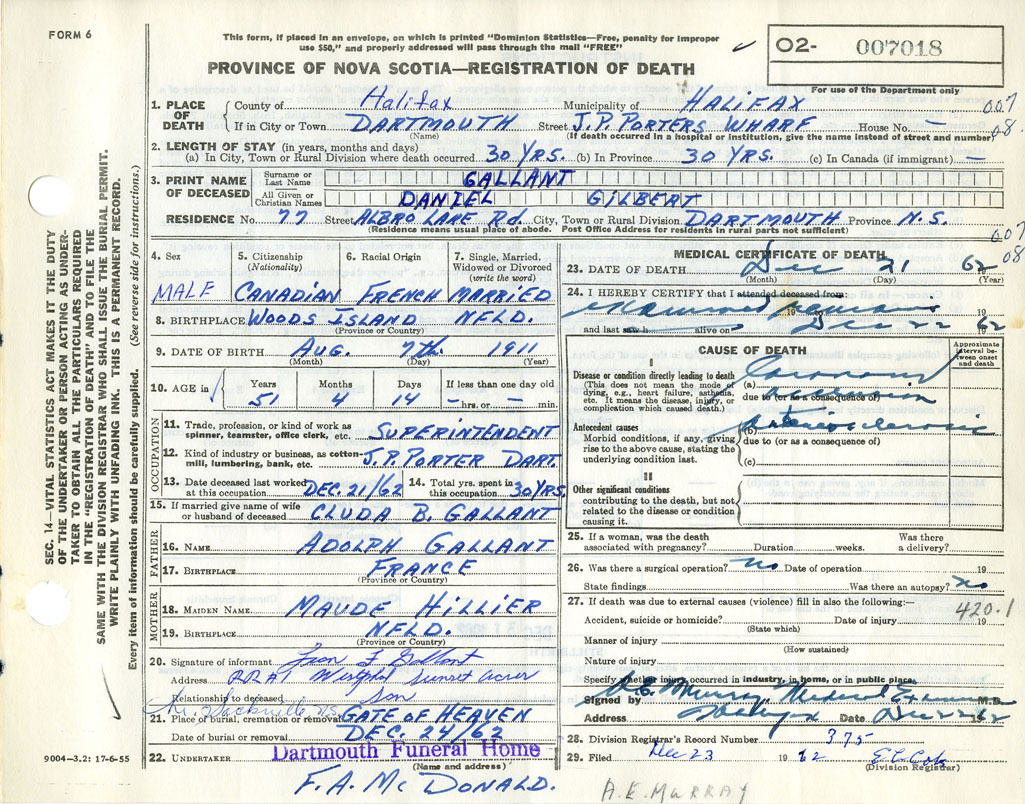 FORM 6
This form, if placed in an envelope, on which is printed "Dominion Statistics—Free, penalty for improper
use $50," and properly addressed will pass through the mail "FREE"
PROVINCE OF NOVA SCOTIA—REGISTRATION OF DEATH
✓ O2- 007018
For use of the Department only
007
08.
1. PLACE OF DEATH County of Halifax Municipality of HALIFAX
If in City or Town DARTMOUTH Street J.P. PORTERS WHARF House No. —
(Name) (If death occurred in a hospital or institution, give the name instead of street and number)
2. LENGTH OF STAY (in years, months and days)
(a) In City, Town or Rural Division where death occurred 30 YRS. (b) In Province 30 YRS. (c) In Canada (if immigrant) —
3. PRINT NAME OF DECEASED Surname or Last Name GALLANT
All Given or Christian Names DANIEL GILBERT
RESIDENCE No. 77 Street ALBRO LAKE Rd. City, Town or Rural Division DARTMOUTH Province N.S.
(Residence means usual place of abode. Post Office Address for residents in rural parts not sufficient)
007
08
4. Sex 5. Citizenship (Nationality) 6. Racial Origin 7. Single, Married, Widowed or Divorced (write the word)
MALE CANADIAN FRENCH MARRIED
8. BIRTHPLACE WOODS ISLAND NFLD.
(Province or Country)
9. DATE OF BIRTH AUG. 7th. 1911
(Month) (Day) (Year)
10. AGE in Years Months Days If less than one day old
51 4 14 — hrs. or — min.
OCCUPATION
11. Trade, profession, or kind of work as spinner, teamster, office clerk, etc. SUPERINTENDENT
12. Kind of industry or business, as cotton-mill, lumbering, bank, etc. J.P. PORTER DART.
13. Date deceased last worked at this occupation DEC. 21/62 14. Total yrs. spent in this occupation 30 YRS.
15. If married give name of wife or husband of deceased CLUDA B. GALLANT
FATHER
16. NAME ADOLPH GALLANT
17. BIRTHPLACE FRANCE
(Province or Country)
MOTHER
18. MAIDEN NAME MAUDE HILLIER
19. BIRTHPLACE NFLD.
(Province or Country)
20. Signature of informant Gallant
Address Westphal Sunset Acres
Relationship to deceased Son
Sackville N.S.
21. Place of burial, cremation or removal GATE OF HEAVEN
Date of burial or removal DEC. 24/62
22. UNDERTAKER Dartmouth Funeral Home
(Name and address)
F.A. McDONALD.
9004—3.2: 17-6-55
MEDICAL CERTIFICATE OF DEATH
23. DATE OF DEATH Dec 21 1962
(Month) (Day) (Year)
24. I HEREBY CERTIFY that I attended deceased from:
19
and last saw h alive on Dec 22 1962
CAUSE OF DEATH Approximate interval between onset and death
I
Disease or condition directly leading to death
(This does not mean the mode of dying, e.g., heart failure, asthenia, etc. It means the disease, injury, or complication which caused death.)
(a) Coronary
due to (or as a consequence of) occlusion
Antecedent causes
Morbid conditions, if any, giving rise to the above cause, stating the underlying condition last.
(b) Arteriosclerosis
due to (or as a consequence of)
(c)
II
Other significant conditions
contributing to the death, but not related to the disease or condition causing it.
25. If a woman, was the death associated with pregnancy? Duration weeks. Was there a delivery?
26. Was there a surgical operation? no Date of operation 19
State findings Was there an autopsy? no
27. If death was due to external causes (violence) fill in also the following:—
420.1
Accident, suicide or homicide? Date of injury 19
(State which)
Manner of injury
(How sustained)
Nature of injury
Specify whether injury occurred in industry, in home, or in public place
Signed by Murray Medical Examiner M.D.
Address Halifax Date Dec 22 1962
28. Division Registrar's Record Number 375
29. Filed Dec 23 1962
(Division Registrar)
A.E. MURRAY
SEC. 14—VITAL STATISTICS ACT MAKES IT THE DUTY
OF THE UNDERTAKER OR PERSON ACTING AS UNDER-
TAKER TO OBTAIN ALL THE PARTICULARS REQUIRED
IN THE "REGISTRATION OF DEATH" AND TO FILE THE
SAME WITH THE DIVISION REGISTRAR WHO SHALL ISSUE THE BURIAL PERMIT.
WRITE PLAINLY WITH UNFADING INK. THIS IS A PERMANENT RECORD.
Every item of information should be carefully supplied. (See reverse side for instructions.)